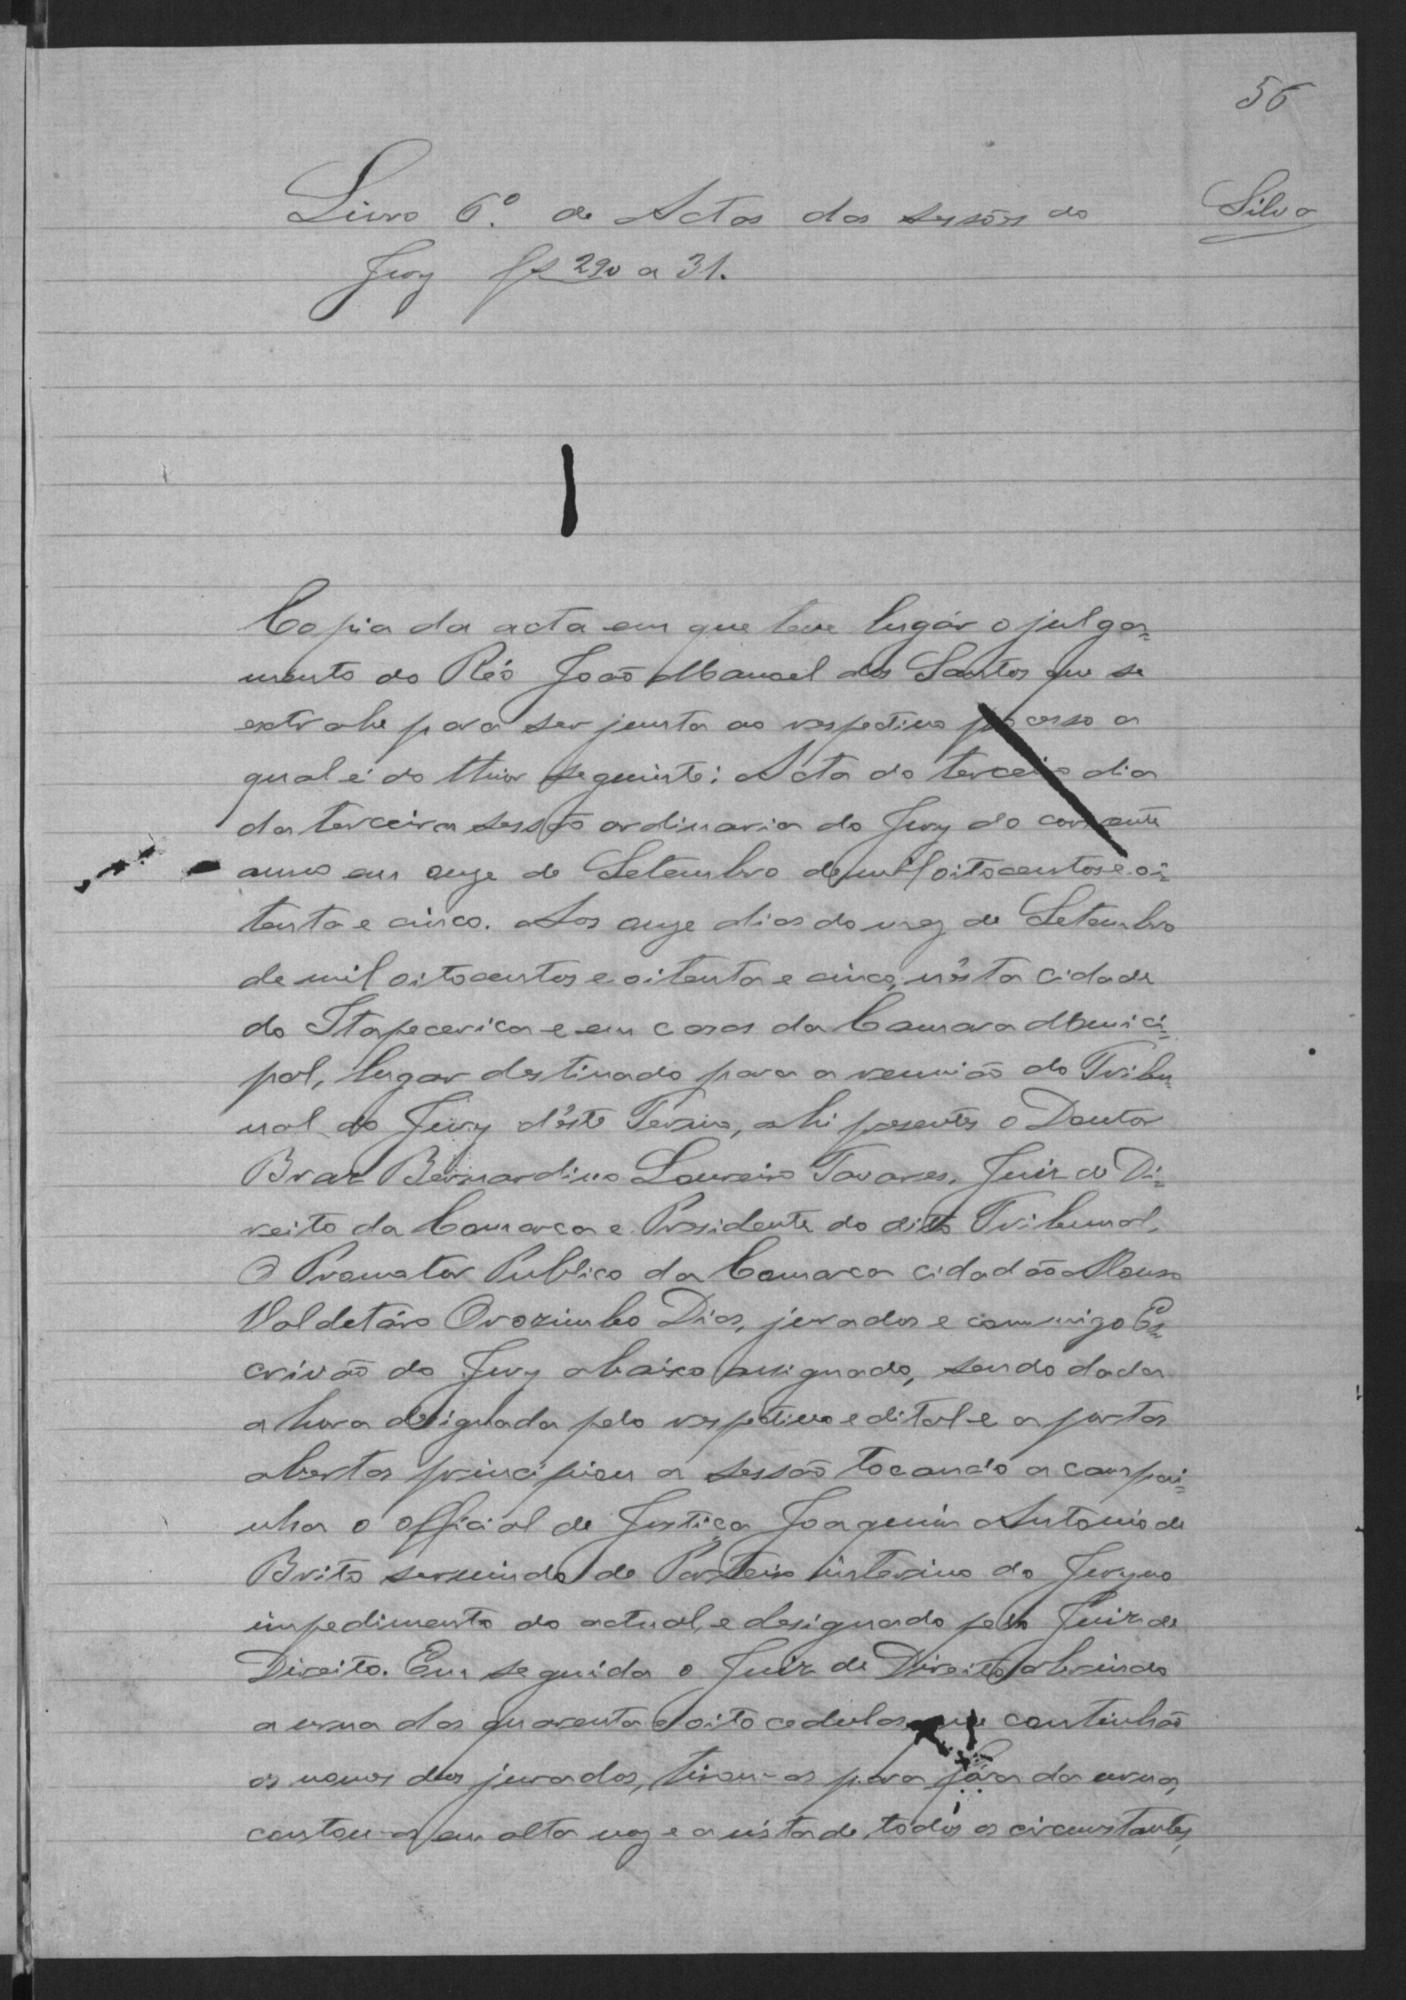 56
Silva
Livro 6º. de Actas das sessões do
Jury fs 29v a 31.
Copia da acta em que teve lugár o julga=
mento do Réo João Manoel dos Santos que se
extrahe para ser junta ao respectivo processo a
qual é do theor seguinte: Acta do terceiro dia
da terceira sessão ordinaria do Jury do corrente
anno em onze de Setembro de mil oitocentos e oi=
tenta e cinco. Aos onze dias do mez de Setembro
de mil oitocentos e oitenta e cinco, n'ésta cidade
do Itapecerica e em casas da Camara Munici=
pal, lugar destinado para a reunião do Tribu=
nal do Jury d'éste Termo, ahi presentes o Doutor
Braz Bernardino Loureiro Tavares, Juiz de Di=
reito da Comarca e Presidente do dito Tribunal,
O Promotor Publico da Comarca cidadão
Valdetáro Orozimbo Dias, jurados e commigo Es=
crivão do Jury abaixo assignado, sendo dada
a hora designada pelo respectivo edital e a portas
abertas principiou a sessão tocando a campai=
nha o official de Justiça Joaquim Antonio de
Brito servindo de Porteiro interino do Jury no
impedimento do actual, e designado pelo Juiz de
Direito. Em seguida o Juiz de Direito abrindo
a urna das quarenta e oito cedulas que continhão
os nomes dos jurados, tirou-as para fóra da urna,
contou-as em alta voz e a vista de todos os circunstantes,